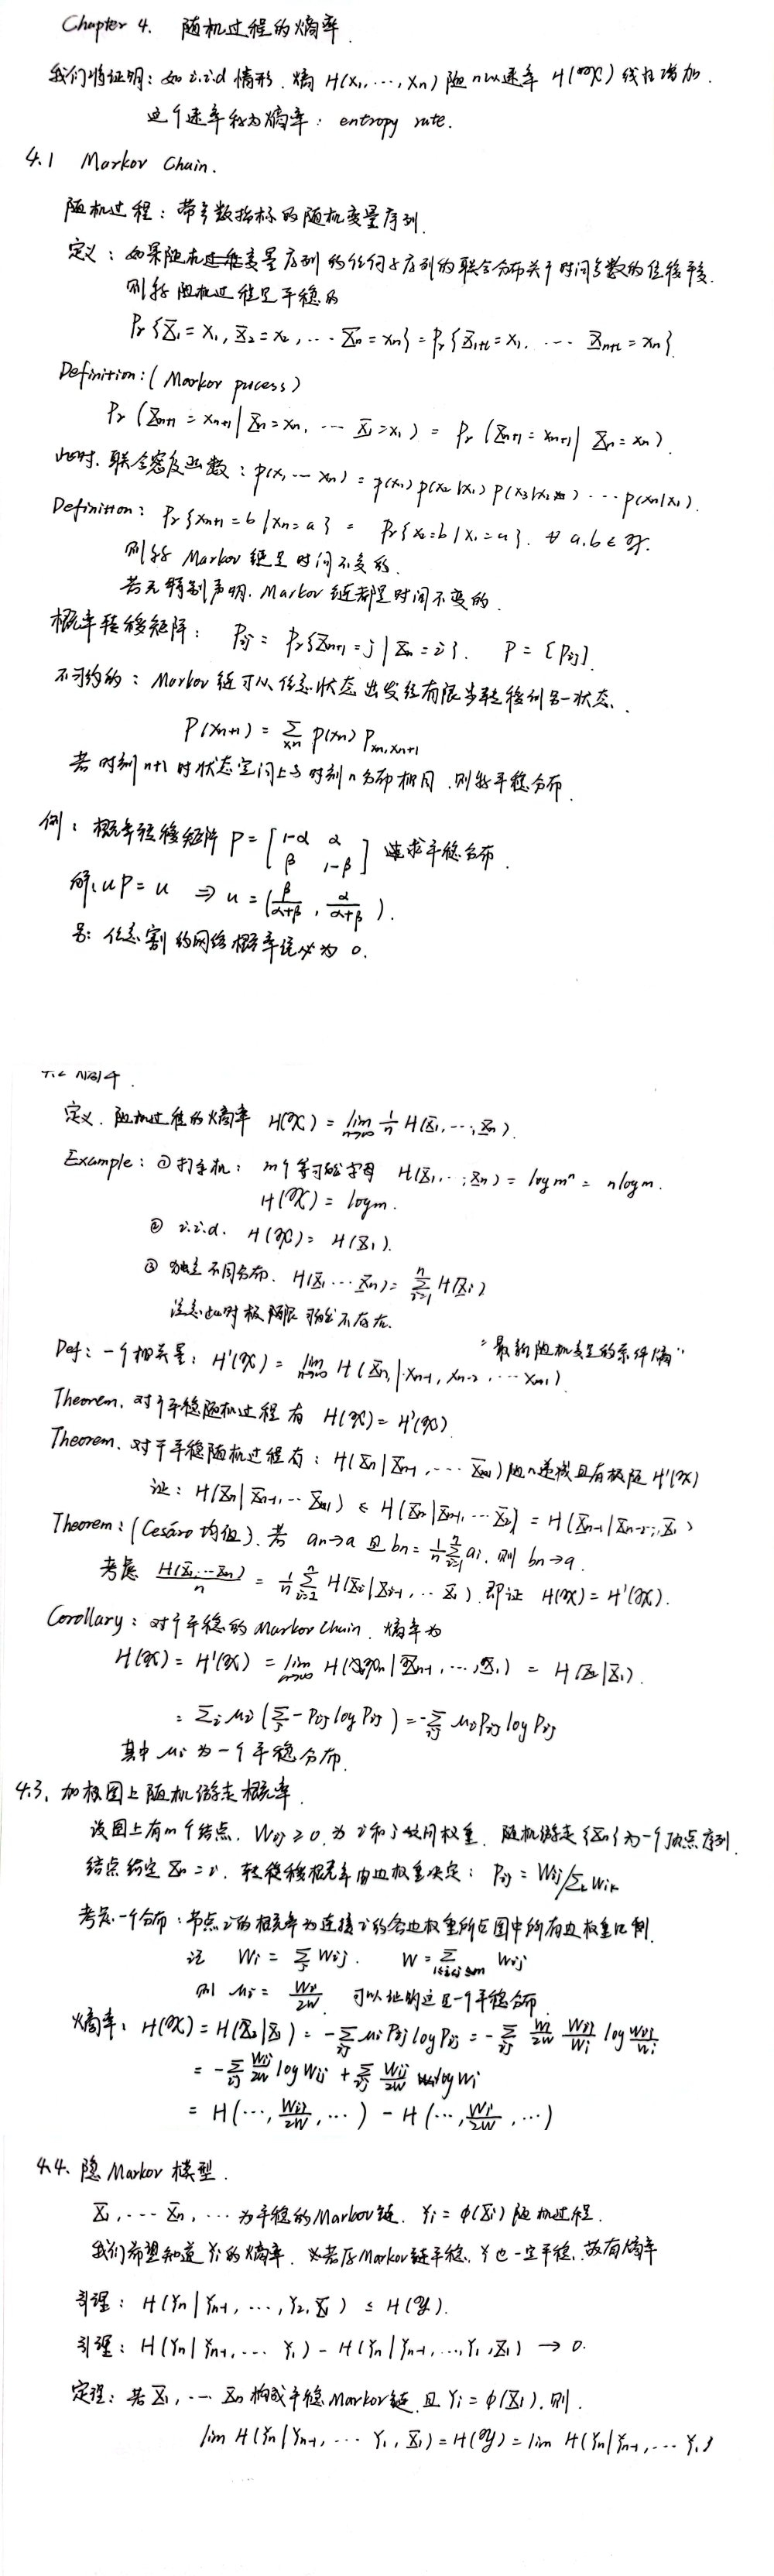 Chapter 4. 随机过程的熵率.
我们将证明: 如 i.i.d 情形. 熵 H(X₁,⋯,Xn) 随 n 以速率 H(𝒳) 线性增加.
这个速率称为熵率: entropy rate.
4.1 Markov Chain.
随机过程: 带参数指标的随机变量序列.
定义: 如果随机变量序列的任何子序列的联合分布关于时间参数的位移不变.
则称随机过程是平稳的
Pr{X₁=x₁, X₂=x₂, ⋯ Xn=xn} = Pr{X₁₊ₗ=x₁, ⋯ Xn+l=xn}.
Definition: (Markov process)
Pr(Xn+1=xn+1|Xn=xn, ⋯ X₁=x₁) = Pr(Xn+1=xn+1|Xn=xn).
此时. 联合密度函数: p(x₁⋯xn) = p(x₁)p(x₂|x₁)p(x₃|x₂)⋯p(xn|x₁).
Definition: Pr{Xn+1=b|Xn=a} = Pr{X₂=b|X₁=a}. ∀ a,b∈𝒳.
则称 Markov 链是时间不变的.
若无特别声明. Markov 链都是时间不变的.
概率转移矩阵: Pij = Pr{Xn+1=j|Xn=i}. P=[Pij].
不可约的: Markov 链可从任意状态出发经有限步转移到另一状态.
P(xn+1) = Σxn p(xn) Pxn,xn+1
若时刻 n+1 时状态空间上与时刻 n 分布相同. 则称平稳分布.
例: 概率转移矩阵 P = [1-α α; β 1-β] 求平稳分布.
解: uP=u ⇒ u=(β/(α+β), α/(α+β)).
另: 任意割的网络概率流必为 0.
4.2 熵率.
定义. 随机过程的熵率 H(𝒳) = lim n→∞ 1/n H(X₁,⋯,Xn).
Example: ① 打字机: m个等可能字母 H(X₁,⋯,Xn) = log mⁿ = n log m.
H(𝒳) = log m.
② i.i.d. H(𝒳) = H(X₁).
③ 独立不同分布. H(X₁⋯Xn) = Σⁿi=1 H(Xi)
注意此时极限可能不存在.
"最新随机变量的条件熵"
Def: 一个相关量: H'(𝒳) = lim n→∞ H(Xn|Xn-1, Xn-2, ⋯ X₁)
Theorem. 对于平稳随机过程有 H(𝒳) = H'(𝒳)
Theorem. 对于平稳随机过程有: H(Xn|Xn-1, ⋯ X₁) 随n递减且有极限 H'(𝒳)
证: H(Xn|Xn-1,⋯X₁) ≤ H(Xn|Xn-1,⋯X₂) = H(Xn-1|Xn-2,⋯,X₁)
Theorem: (Cesáro 均值). 若 an→a 且 bn = 1/n Σⁿi=1 ai. 则 bn→a.
考虑 H(X₁,⋯Xn)/n = 1/n Σⁿi=1 H(Xi|Xi-1,⋯X₁). 即证 H(𝒳)=H'(𝒳).
Corollary: 对于平稳的 Markov Chain. 熵率为
H(𝒳) = H'(𝒳) = lim n→∞ H(Xn|Xn-1,⋯,X₁) = H(X₂|X₁).
= Σi μi (Σj -Pij log Pij) = -Σij μi Pij log Pij
其中 μi 为一个平稳分布.
4.3. 加权图上随机游走概率.
设图上有m个结点. Wij≥0 为 i 和 j 的间权重. 随机游走{Xn}为一个顶点序列.
结点给定 Xn=i. 转移概率由边权重决定: Pij = Wij/Σk Wik
考虑一个分布: 节点i的概率为连接i的各边权重所占图中所有边权重比例.
记 Wi = Σj Wij. W = Σ1≤i<j≤m Wij
则 μi = Wi/2W 可以证明这是一个平稳分布
熵率: H(𝒳) = H(X₂|X₁) = -Σij μi Pij log Pij = -Σij Wi/2W Wij/Wi log Wij/Wi
= -Σij Wij/2W log Wij + Σij Wij/2W log Wi
= H(⋯, Wij/2W, ⋯) - H(⋯, Wi/2W, ⋯)
4.4. 隐 Markov 模型.
X₁, ⋯ Xn, ⋯ 为平稳的 Markov 链. Yi = φ(Xi) 随机过程.
我们希望知道 Yi 的熵率. 若原 Markov 链平稳. Y也一定平稳. 故有熵率
引理: H(Yn|Yn-1, ⋯, Y₂, X₁) ≤ H(𝒴).
引理: H(Yn|Yn-1, ⋯ Y₁) - H(Yn|Yn-1, ⋯, Y₁, X₁) → 0.
定理: 若 X₁, ⋯ Xn 构成平稳 Markov 链. 且 Yi = φ(Xi). 则.
lim H(Yn|Yn-1, ⋯ Y₁, X₁) = H(𝒴) = lim H(Yn|Yn-1, ⋯ Y₁)